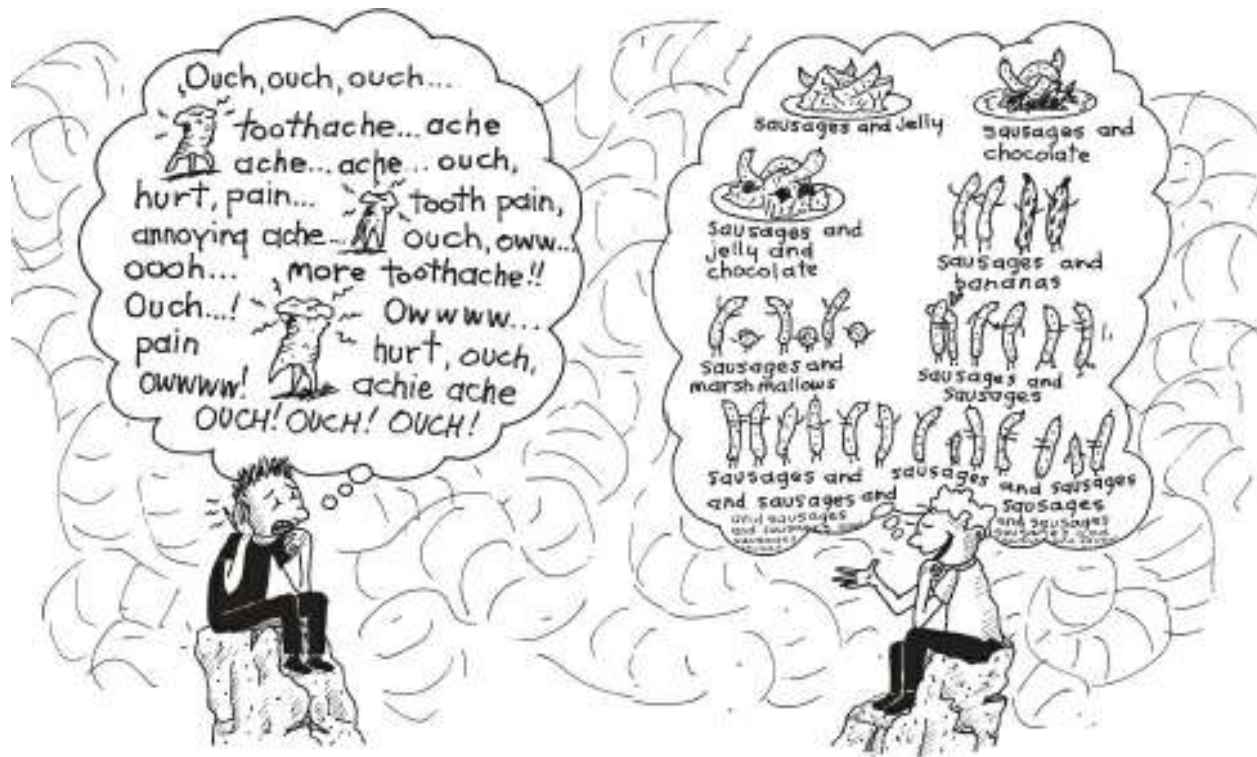 Ouch, ouch, ouch...
toothache... ache
ache... ache... ouch,
hurt, pain... tooth pain,
annoying ache... ouch, oww...
oooh... more toothache!!
Ouch...! Owwww...
pain hurt, ouch,
owwww! achie ache
OUCH! OUCH! OUCH!
sausages and jelly
sausages and
chocolate
sausages and
jelly and
chocolate
sausages and
bananas
sausages and
marshmallows
sausages and
sausages
sausages and sausages and sausages
and sausages and sausages
and sausages and sausages
and sausages sausages and
sausages